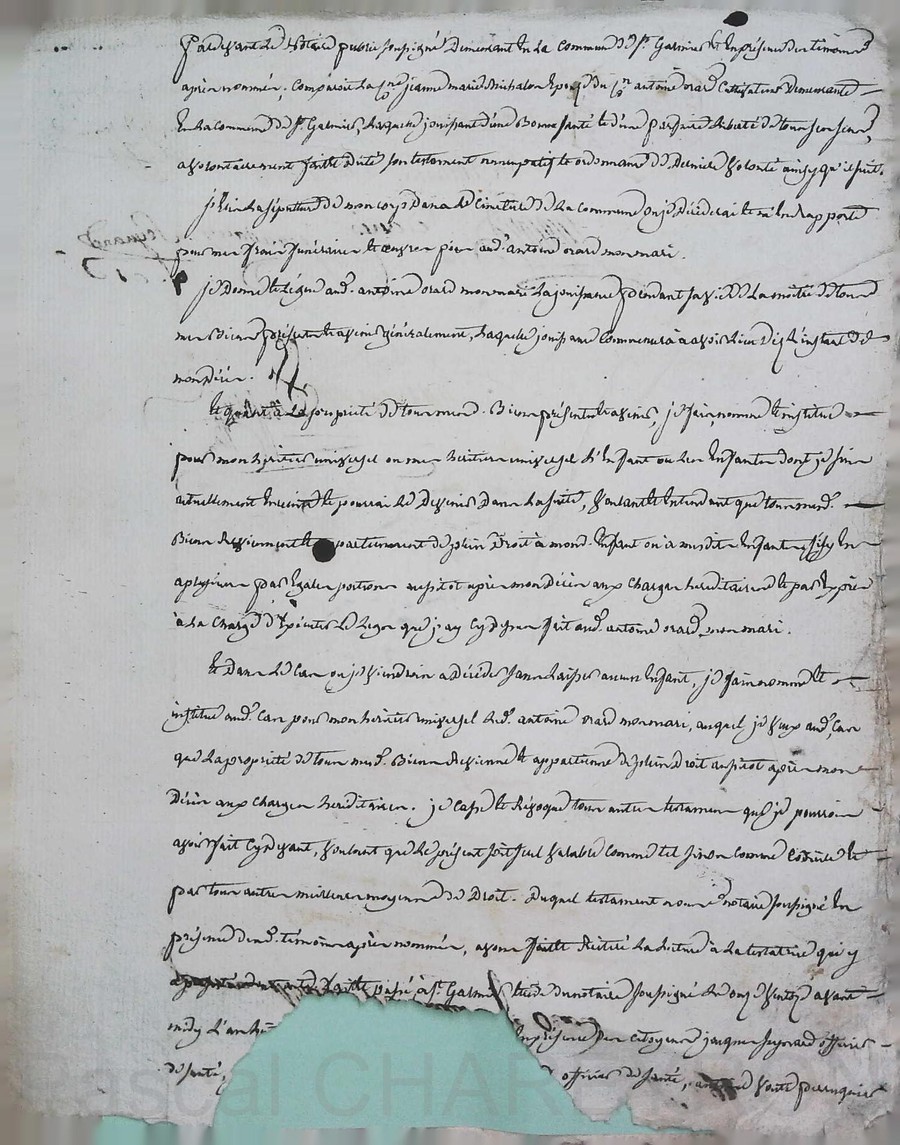 Pardevant Le Notaire public soussigné Demeurant En La Commune de St. Galmier Et En présence des témoins
après nommés, Comparait La Cne jeanne marie Michalon Epouse du Cn antoine orard Cultivateur Demeurante
En La Commune de St. Galmier, Laquelle jouissante d'une Bonne santé Et d'une parfaite Liberté de tous ses sens,
a volontairement faitte Dicté son testament nuncupatif Et ordonnance de Dernière Volonté ainsy qu'il suit.
j'Elis La sépulture de mon corps Dans Le Cimetière de La Commune ou je Décéderai Et m'En Rapporte
pour mes frais funéraires Et œuvres pies aud. antoine orard mon mari.
je Donne Et Lègue aud. antoine orard mon mari La jouissance pendant sa vie de La moitié de tous
mes Biens présents Et avenir généralement, Laquelle jouissance Commencera à avoir Lieu Dès L'instant de
mon Décès.
Et quant à La propriété de tous mesd. Biens présents Et avenir, je fais, nomme Et institue
pour mon héritier universel ou mes héritiers universel L'Enfant ou Les Enfants dont je suis
actuellement Enceinte Et pourrai Le Devenir Dans La suite, Voulant Et Entendant que tous mesd.
Biens Reviennent Et appartiennent de plein Droit à mond. Enfant ou à mesdits Enfants s'il y En
a plusieurs par Egales portions aussitot après mon Décès aux Charges héréditaires Et par Exprès
à La Charge d'Exécuter Le Legs que j'ay Cy dessus fait aud. antoine orard mon mari.
Et Dans Le Cas ou je Viendrois a Décéder sans Laisser aucuns Enfant, je fais nomme Et
institue aud. Cas pour mon héritier universel Led. antoine orard mon mari, auquel je Veux aud. Cas
que La propriété de tous mesd. Biens Revienne Et appartienne de plein Droit aussitot après mon
Décès aux Charges héréditaires. je Casse Et Révoque tous autres testaments que je pourrois
avoir fait Cy devant, Voulant que Le présent soit seul Valable Comme tel sinon Comme Codicile Et
par tous autres meilleurs moyens de Droit. Duquel testament nous notaire soussigné En
présence desd. témoins après nommés, avons faitte Réitéré La Lecture à La testatrice qui y
faitte passé à St. Galmier Etude du notaire soussigné Le onze Vantose avant
midy L'an En présence des citoyens jacques officier
de santé, officier de santé, antoine perruquier